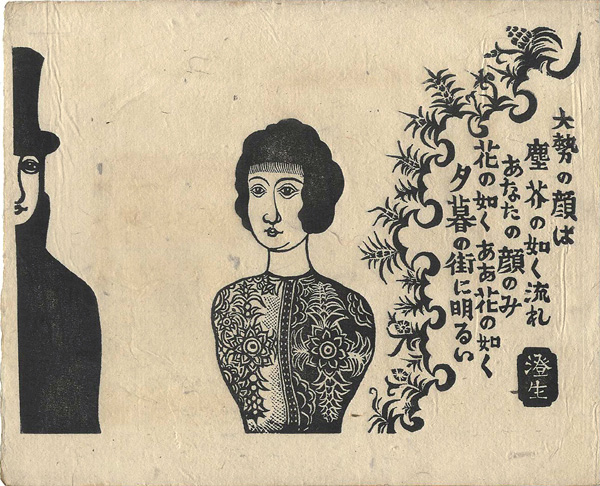 大勢の顔は
塵芥の如く流れ
あなたの顔のみ
花の如くああ花の如く
夕暮の街に明るい
澄生